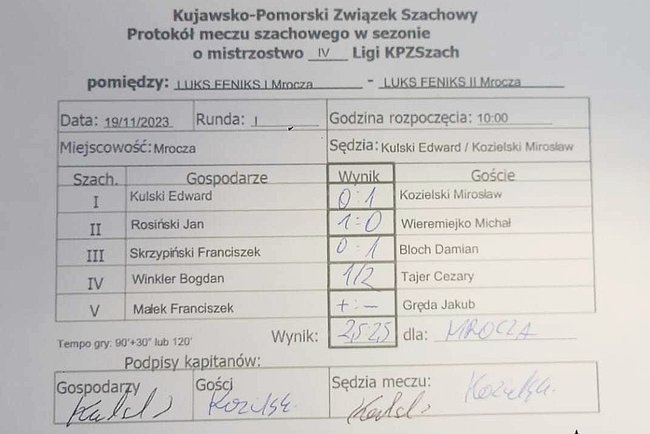 Kujawsko-Pomorski Związek Szachowy
Protokół meczu szachowego w sezonie
o mistrzostwo IV Ligi KPZSzach
pomiędzy: LUKS FENIKS I Mrocza - LUKS FENIKS II Mrocza
Data: 19/11/2023 Runda: I Godzina rozpoczęcia: 10:00
Miejscowość: Mrocza Sędzia: Kulski Edward / Kozielski Mirosław
Szach. Gospodarze Wynik Goście
I Kulski Edward 0:1 Kozielski Mirosław
II Rosiński Jan 1:0 Wieremiejko Michał
III Skrzypiński Franciszek 0:1 Bloch Damian
IV Winkler Bogdan 1/2 Tajer Cezary
V Małek Franciszek +:- Gręda Jakub
Tempo gry: 90'+30" lub 120' Wynik: 2,5 2,5 dla: MROCZA
Podpisy kapitanów:
Gospodarzy Gości Sędzia meczu: